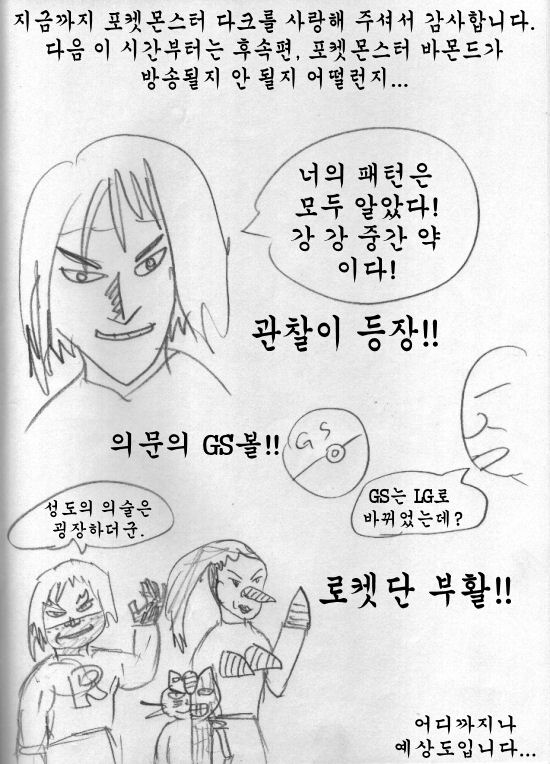 지금까지 포켓몬스터 다크를 사랑해 주셔서 감사합니다.
다음 이 시간부터는 후속편, 포켓몬스터 바몬드가
방송될지 안 될지 어떨런지...
너의 패턴은
모두 알았다!
강 강 중간 약
이다!
관찰이 등장!!
의문의 GS볼!!
GS
GS는 LG로
바뀌었는데?
성도의 의술은
굉장하더군.
로켓단 부활!!
R
어디까지나
예상도입니다...